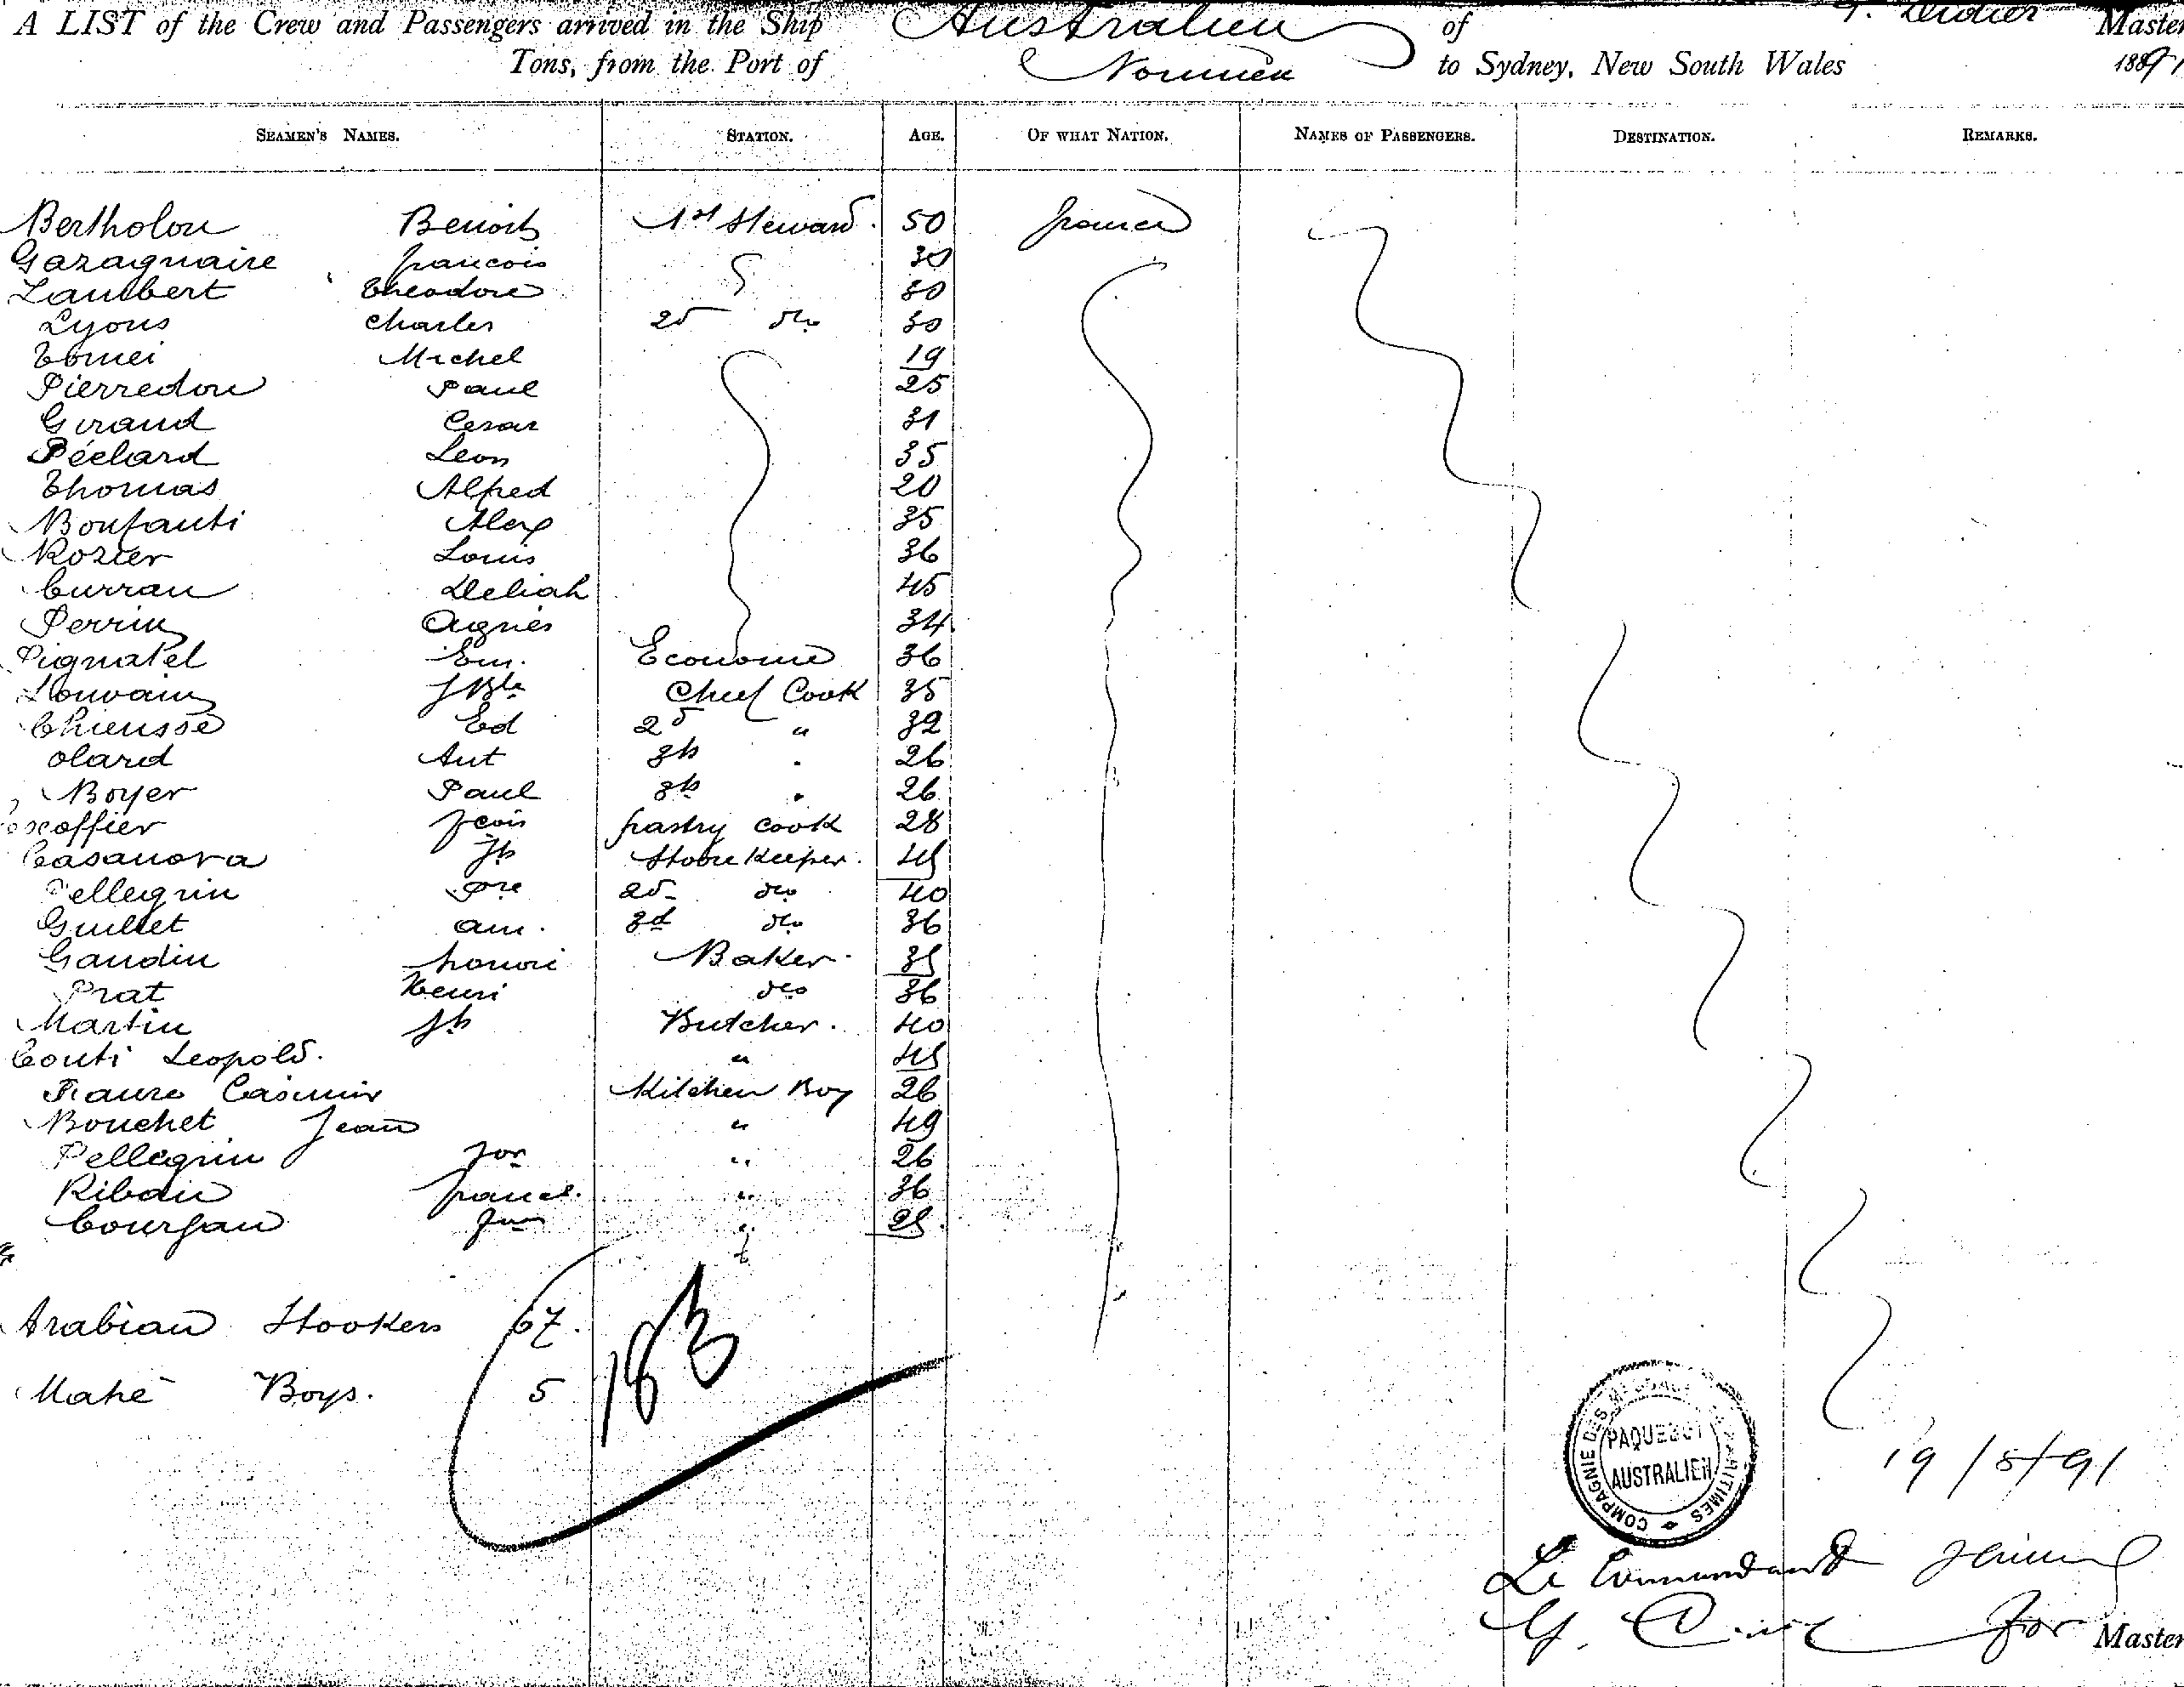 A LIST of the Crew and Passengers arrived in the Ship Australien of Didier Master
Tons, from the Port of Noumea to Sydney, New South Wales 1891
SEAMEN'S NAMES. STATION. AGE. OF WHAT NATION. NAMES OF PASSENGERS. DESTINATION. REMARKS.
Bertholon Benoit 1st Steward. 50 france
Garagnaire francois 30
Lambert theodore 30
Lyons Charles 2d do 30
Tomei Michel 19
Pierredon Paul 25
Giraud Cesar 31
Péchard Leon 35
Thomas Alfred 20
Bonfanti Alex 35
Rozier Louis 36
Curran Deliah 45
Perrin Agnes 34
Pignatel Em. Econome 36
Louvain JBte Chief Cook 35
Chieusse Ed 2d " 32
Olard Ant 3th " 26
Boyer Paul 3th " 26
Escoffier fcois pastry cook 28
Casanova Jh Storekeeper. 45
Pellegrin Pre 2d do 40
Guillet am. 3d do 36
Gaudin honori Baker. 35
Prat Henri do 36
Martin Jh Butcher. 40
Conti Leopold. " 45
Faure Casimir Kitchen Boy 26
Bouchet Jean " 49
Pellegrin " 26
Ribau francs. " 36
Courjau " 25
Arabian Stookers 67.
Mahé Boys. 5
183
COMPAGNIE DES MESSAGERIES MARITIMES
PAQUEBOT
AUSTRALIEN
19/5/91
Le Commandant
for Master